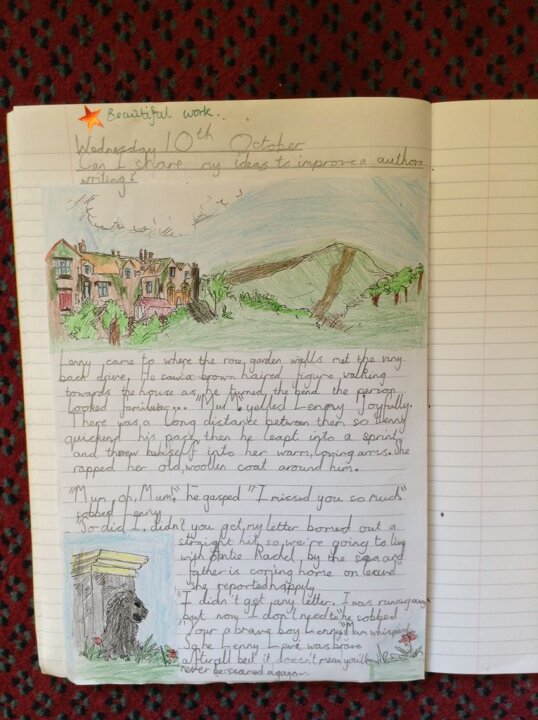 Beautiful work.
Wednesday 10th October
Can I share my ideas to improve a authors
writing?
Lenny came to where the rose garden walls met the
back drive. He saw a brown haired figure walking
towards the house as he turned the bend the person
looked familer... "Mum" yelled Lenny joyfully.
There was a long distante between them so Lenny
quickend his pace then he leapt into a sprint
and threw himself into her warm, loving arms. She
rapped her old, woollen coat around him.
"Mum, oh, Mum," he gasped "I missed you so much"
sobbed Lenny
"So did I, didn't you get my letter bomed out a
straight hit, so we're going to live
with Antie Rachel by the sea and
father is coming home on leave"
she reported happily
"I didn't get any letter. I was running away
but now I don't need to" he sobbed
"Your a brave boy Lenny" Mum whispered
So he Lenny Love was brave
afterall but it doesn't mean you'll
never be scared again.